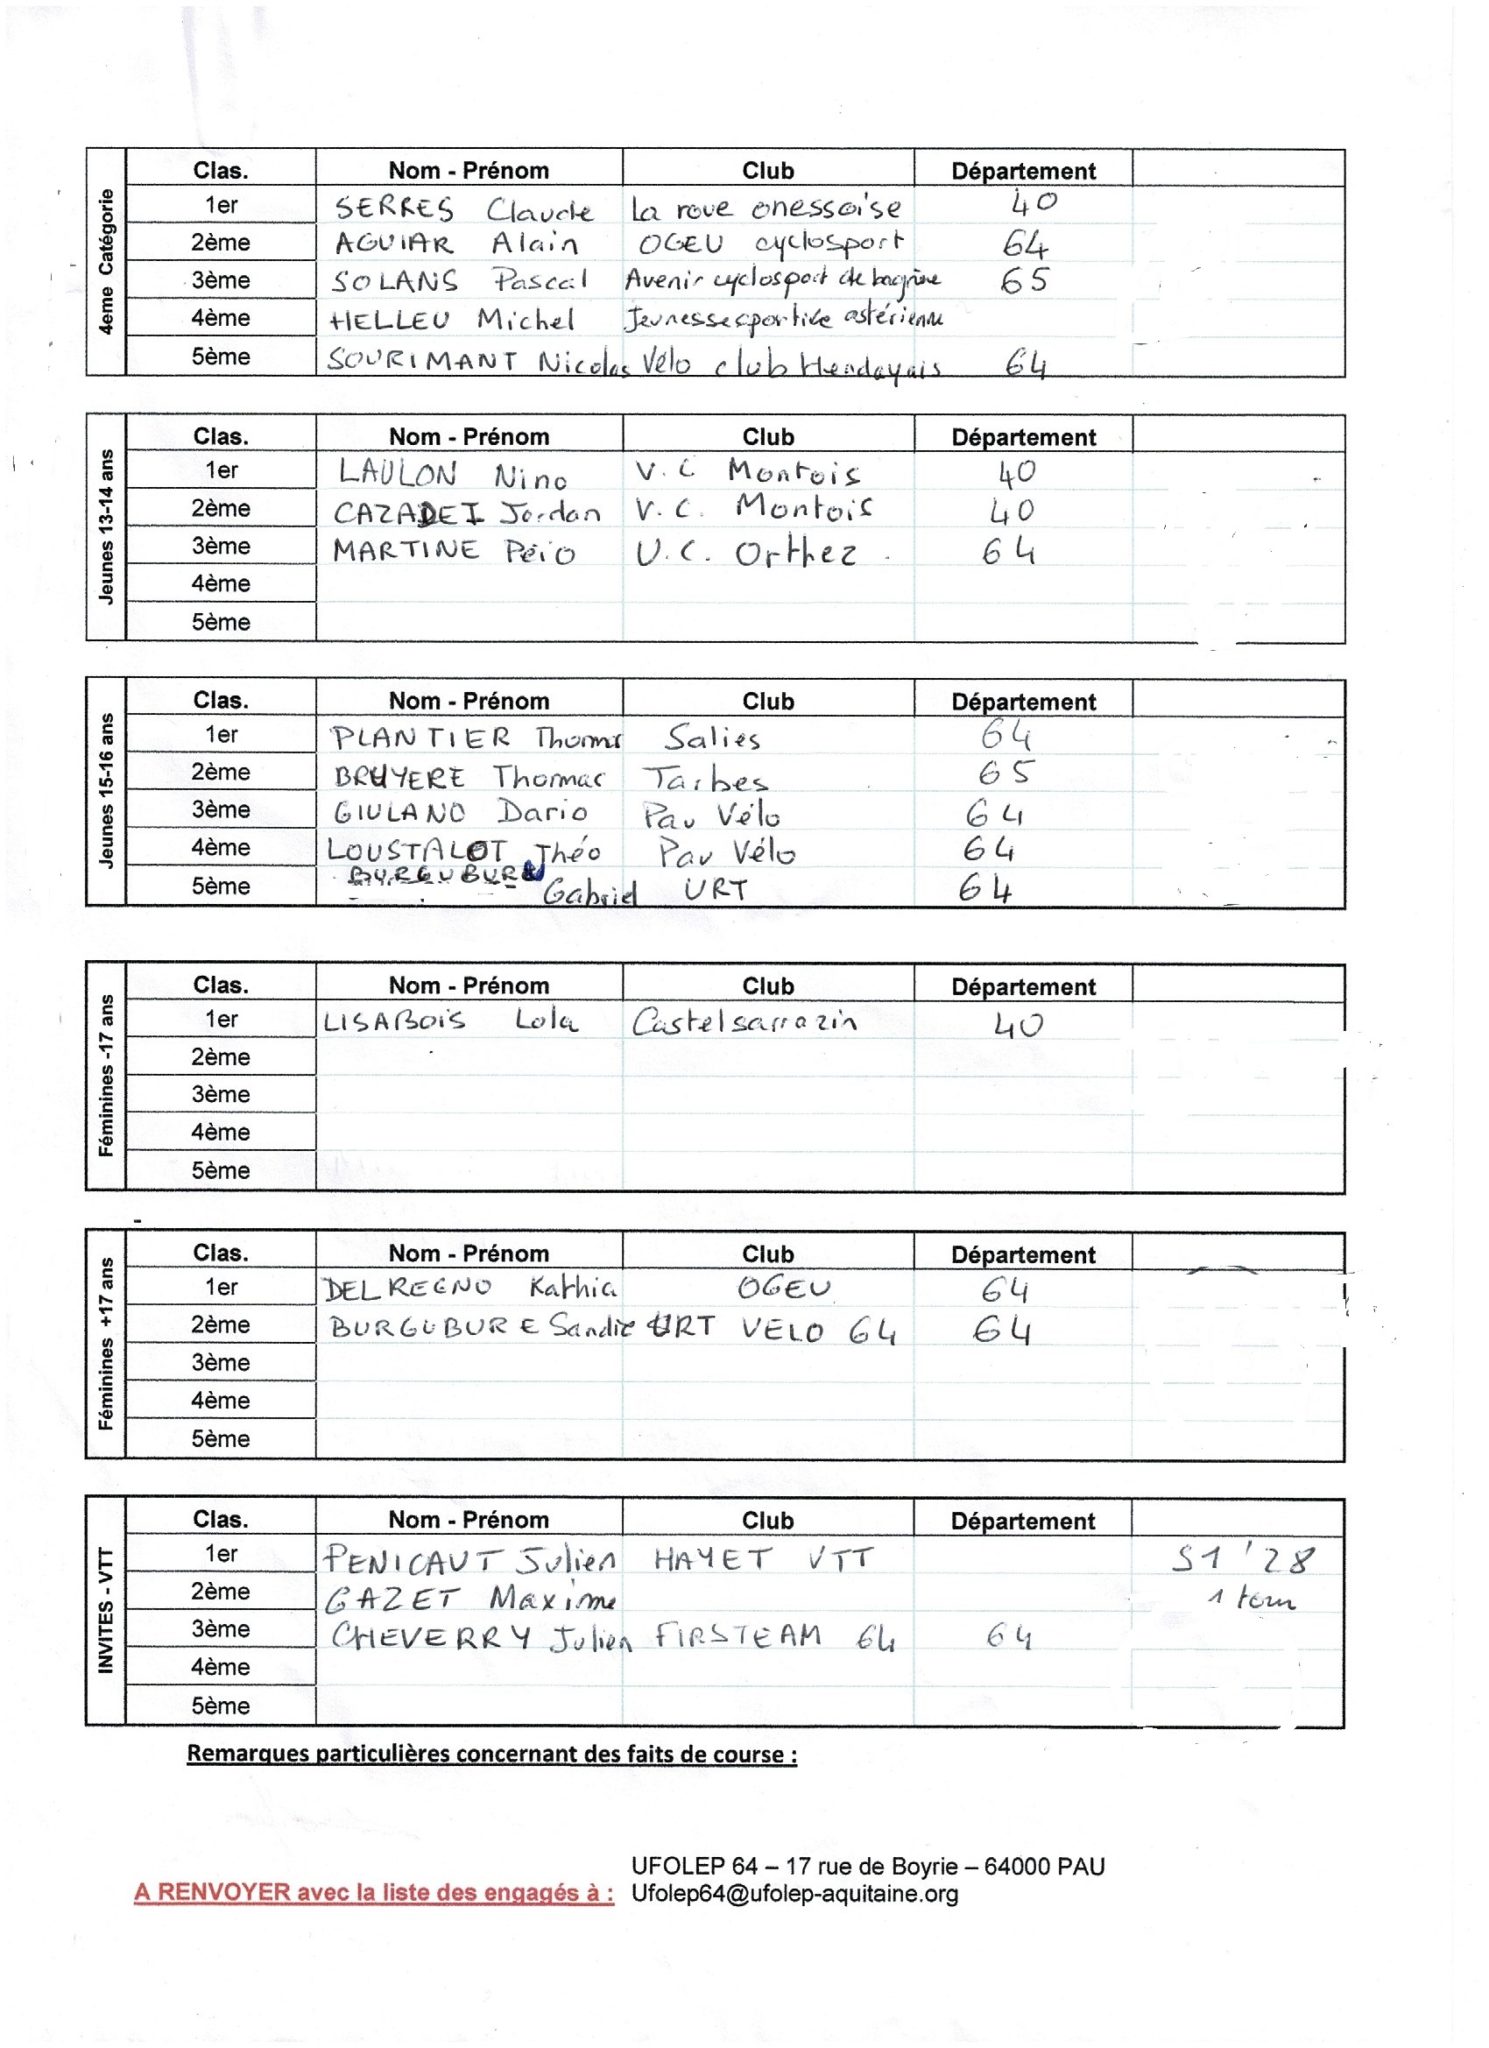 4eme Catégorie
Clas. Nom - Prénom Club Département
1er SERRES Claude La roue onessoise 40
2ème AGUIAR Alain OGEU cyclosport 64
3ème SOLANS Pascal Avenir cyclosport de 65
4ème HELLEU Michel Jeunesse sportive astérienne
5ème SOURIMANT Nicolas Vélo club Hendayais 64
Jeunes 13-14 ans
Clas. Nom - Prénom Club Département
1er LAULON Nino V.C Montois 40
2ème CAZADEI Jordan V.C. Montois 40
3ème MARTINE Peïo U.C. Orthez 64
4ème
5ème
Jeunes 15-16 ans
Clas. Nom - Prénom Club Département
1er PLANTIER Thomas Salies 64
2ème BRUYERE Thomas Tarbes 65
3ème GIULANO Dario Pau Vélo 64
4ème LOUSTALOT Théo Pau Vélo 64
5ème BURGUBURU Gabriel URT 64
Féminines -17 ans
Clas. Nom - Prénom Club Département
1er LISABOIS Lola Castelsarrazin 40
2ème
3ème
4ème
5ème
Féminines +17 ans
Clas. Nom - Prénom Club Département
1er DELREGNO Kathia OGEU 64
2ème BURGUBURE Sandie URT VELO 64 64
3ème
4ème
5ème
INVITES - VTT
Clas. Nom - Prénom Club Département
1er PENICAUT Julien HAYET VTT 51'28
2ème GAZET Maxime 1 tour
3ème CHEVERRY Julien FIRSTEAM 64 64
4ème
5ème
Remarques particulières concernant des faits de course :
UFOLEP 64 – 17 rue de Boyrie – 64000 PAU
A RENVOYER avec la liste des engagés à : Ufolep64@ufolep-aquitaine.org